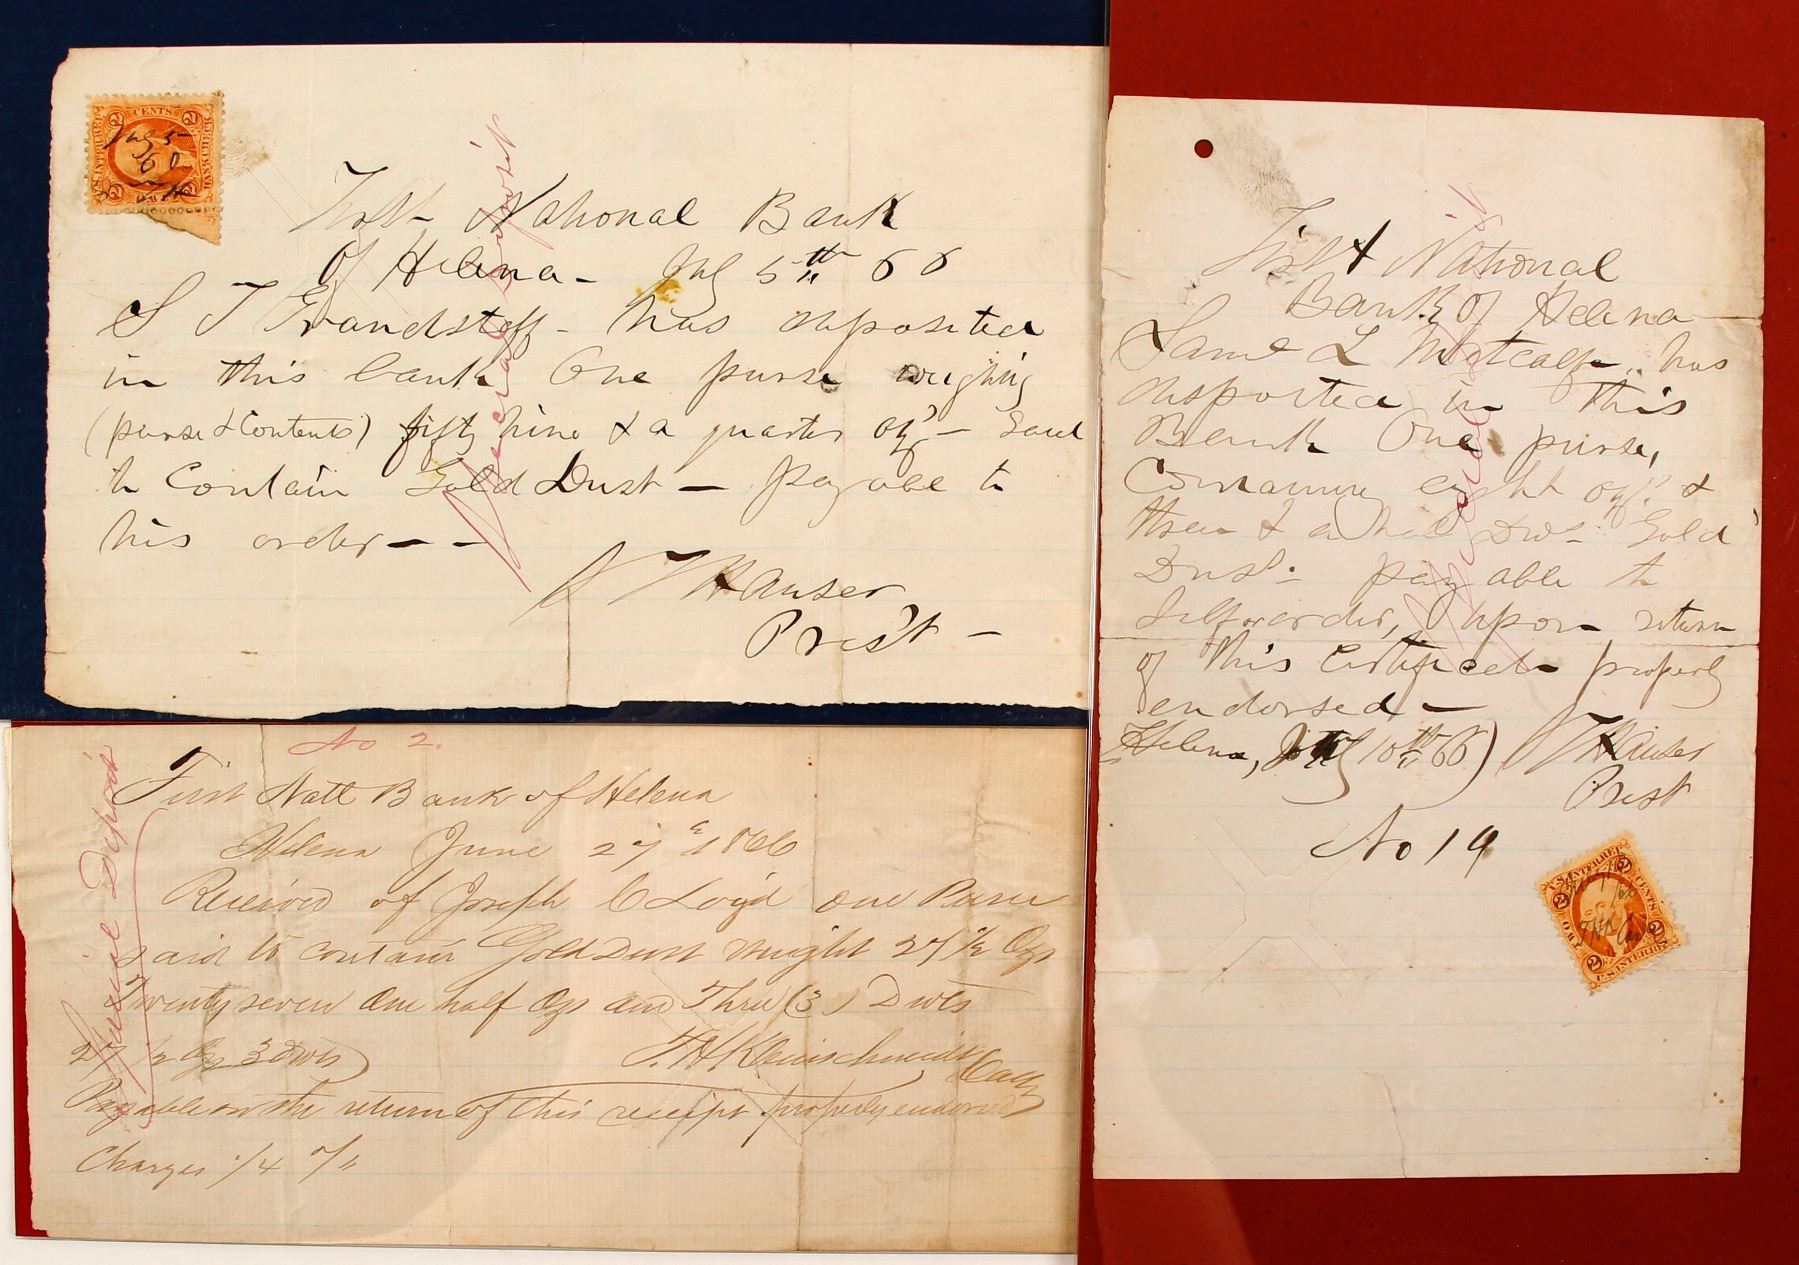 U.S. INTER. REV.
2 CENTS 2
BANK CHECK
July 5
66
First National Bank
Of Helena - July 5th 66
S T Grandstoff - has deposited
in this bank One purse weighing
(purse & Contents) fifty nine & a quarter ozs - Said
to Contain Gold Dust - Payable to
his order - -
S T Hauser
Prest -
Special Deposit
No 2.
First Natl Bank of Helena
Helena June 27th 1866
Received of Joseph C Loyd One Purse
said to contain Gold Dust weight 27 1/2 Ozs
Twenty seven One half Ozs and Three (3) Dwts
27 1/2 Ozs 3 Dwts
T. H. Kleinschmidt Cash
Payable on the return of this receipt properly endorsed
Charges 1/4 %
Special Deposit
First National
Bank of Helena -
Saml L Metcalfe, has
deposited in this
Bank One purse,
Containing eight ozs. &
three & a half Dwt Gold
Dust - payable to
Self or order, upon return
of this Certificate properly
endorsed -
Helena, July 10th 66) S T Hauser
Prest
No 19
Special Deposit
U.S. INTER. REV.
2 CENTS 2
TWO
U.S. INTER. REV.